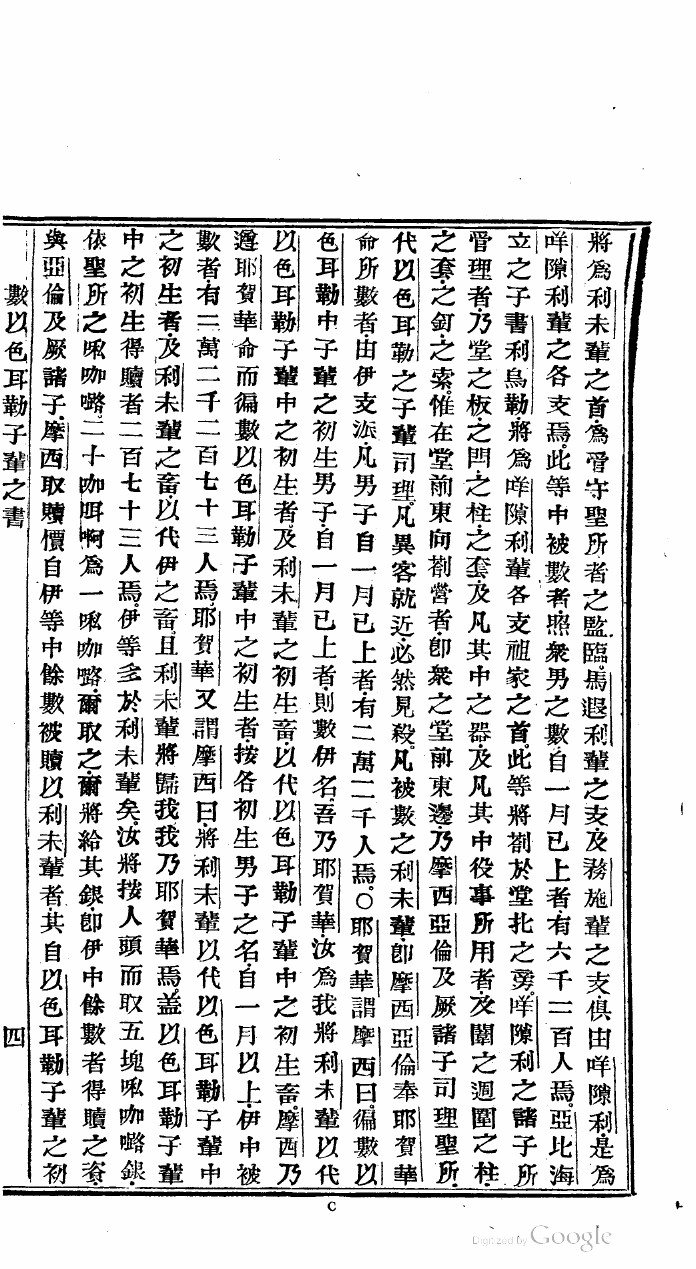 將爲利未輩之首爲管守聖所者之監臨。馬遐利輩之支及務施輩之支俱由咩隙利是爲
咩隙利輩之各支焉。此等中被數者照衆男之數自一月已上者有六千二百人焉。亞比海
立之子書利烏勒將爲咩隙利輩各支祖家之首。此等將劄於堂北之旁。咩隙利之諸子所
管理者乃堂之板之閂之柱之套及凡其中之器及凡其中役事所用者及闈之週圍之柱
之套之釘之索惟在堂前東向劄營者卽衆之堂前東邊乃摩西亞倫及厥諸子司理聖所
代以色耳勒之子輩司理。凡異客就近必然見殺。凡被數之利未輩卽摩西亞倫奉耶賀華
命所數者由伊支派凡男子自一月已上者有二萬二千人焉。○耶賀華謂摩西曰徧數以
色耳勒中子輩之初生男子自一月已上者則數伊名。吾乃耶賀華汝爲我將利未輩以代
以色耳勒子輩中之初生者及利未輩之初生畜以代以色耳勒子輩中之初生畜。摩西乃
遵耶賀華命而徧數以色耳勒子輩中之初生者按各初生男子之名自一月以上伊中被
數者有二萬二千二百七十三人焉。耶賀華又謂摩西曰將利未輩以代以色耳勒子輩中
之初生者及利未輩之畜以代伊之畜且利未輩將歸我我乃耶賀華焉。蓋以色耳勒子輩
中之初生得贖者二百七十三人焉。伊等多於利未輩矣。汝將按人頭而取五塊㖠咖嚕銀
依聖所之㖠咖嚕。二十咖咡啊爲一㖠咖嚕。爾取之爾將給其銀卽伊中餘數者得贖之資
與亞倫及厥諸子。摩西取贖價自伊等中餘數被贖以利未輩者。其自以色耳勒子輩之初
數以色耳勒子輩之書 四
C
Digitized by Google